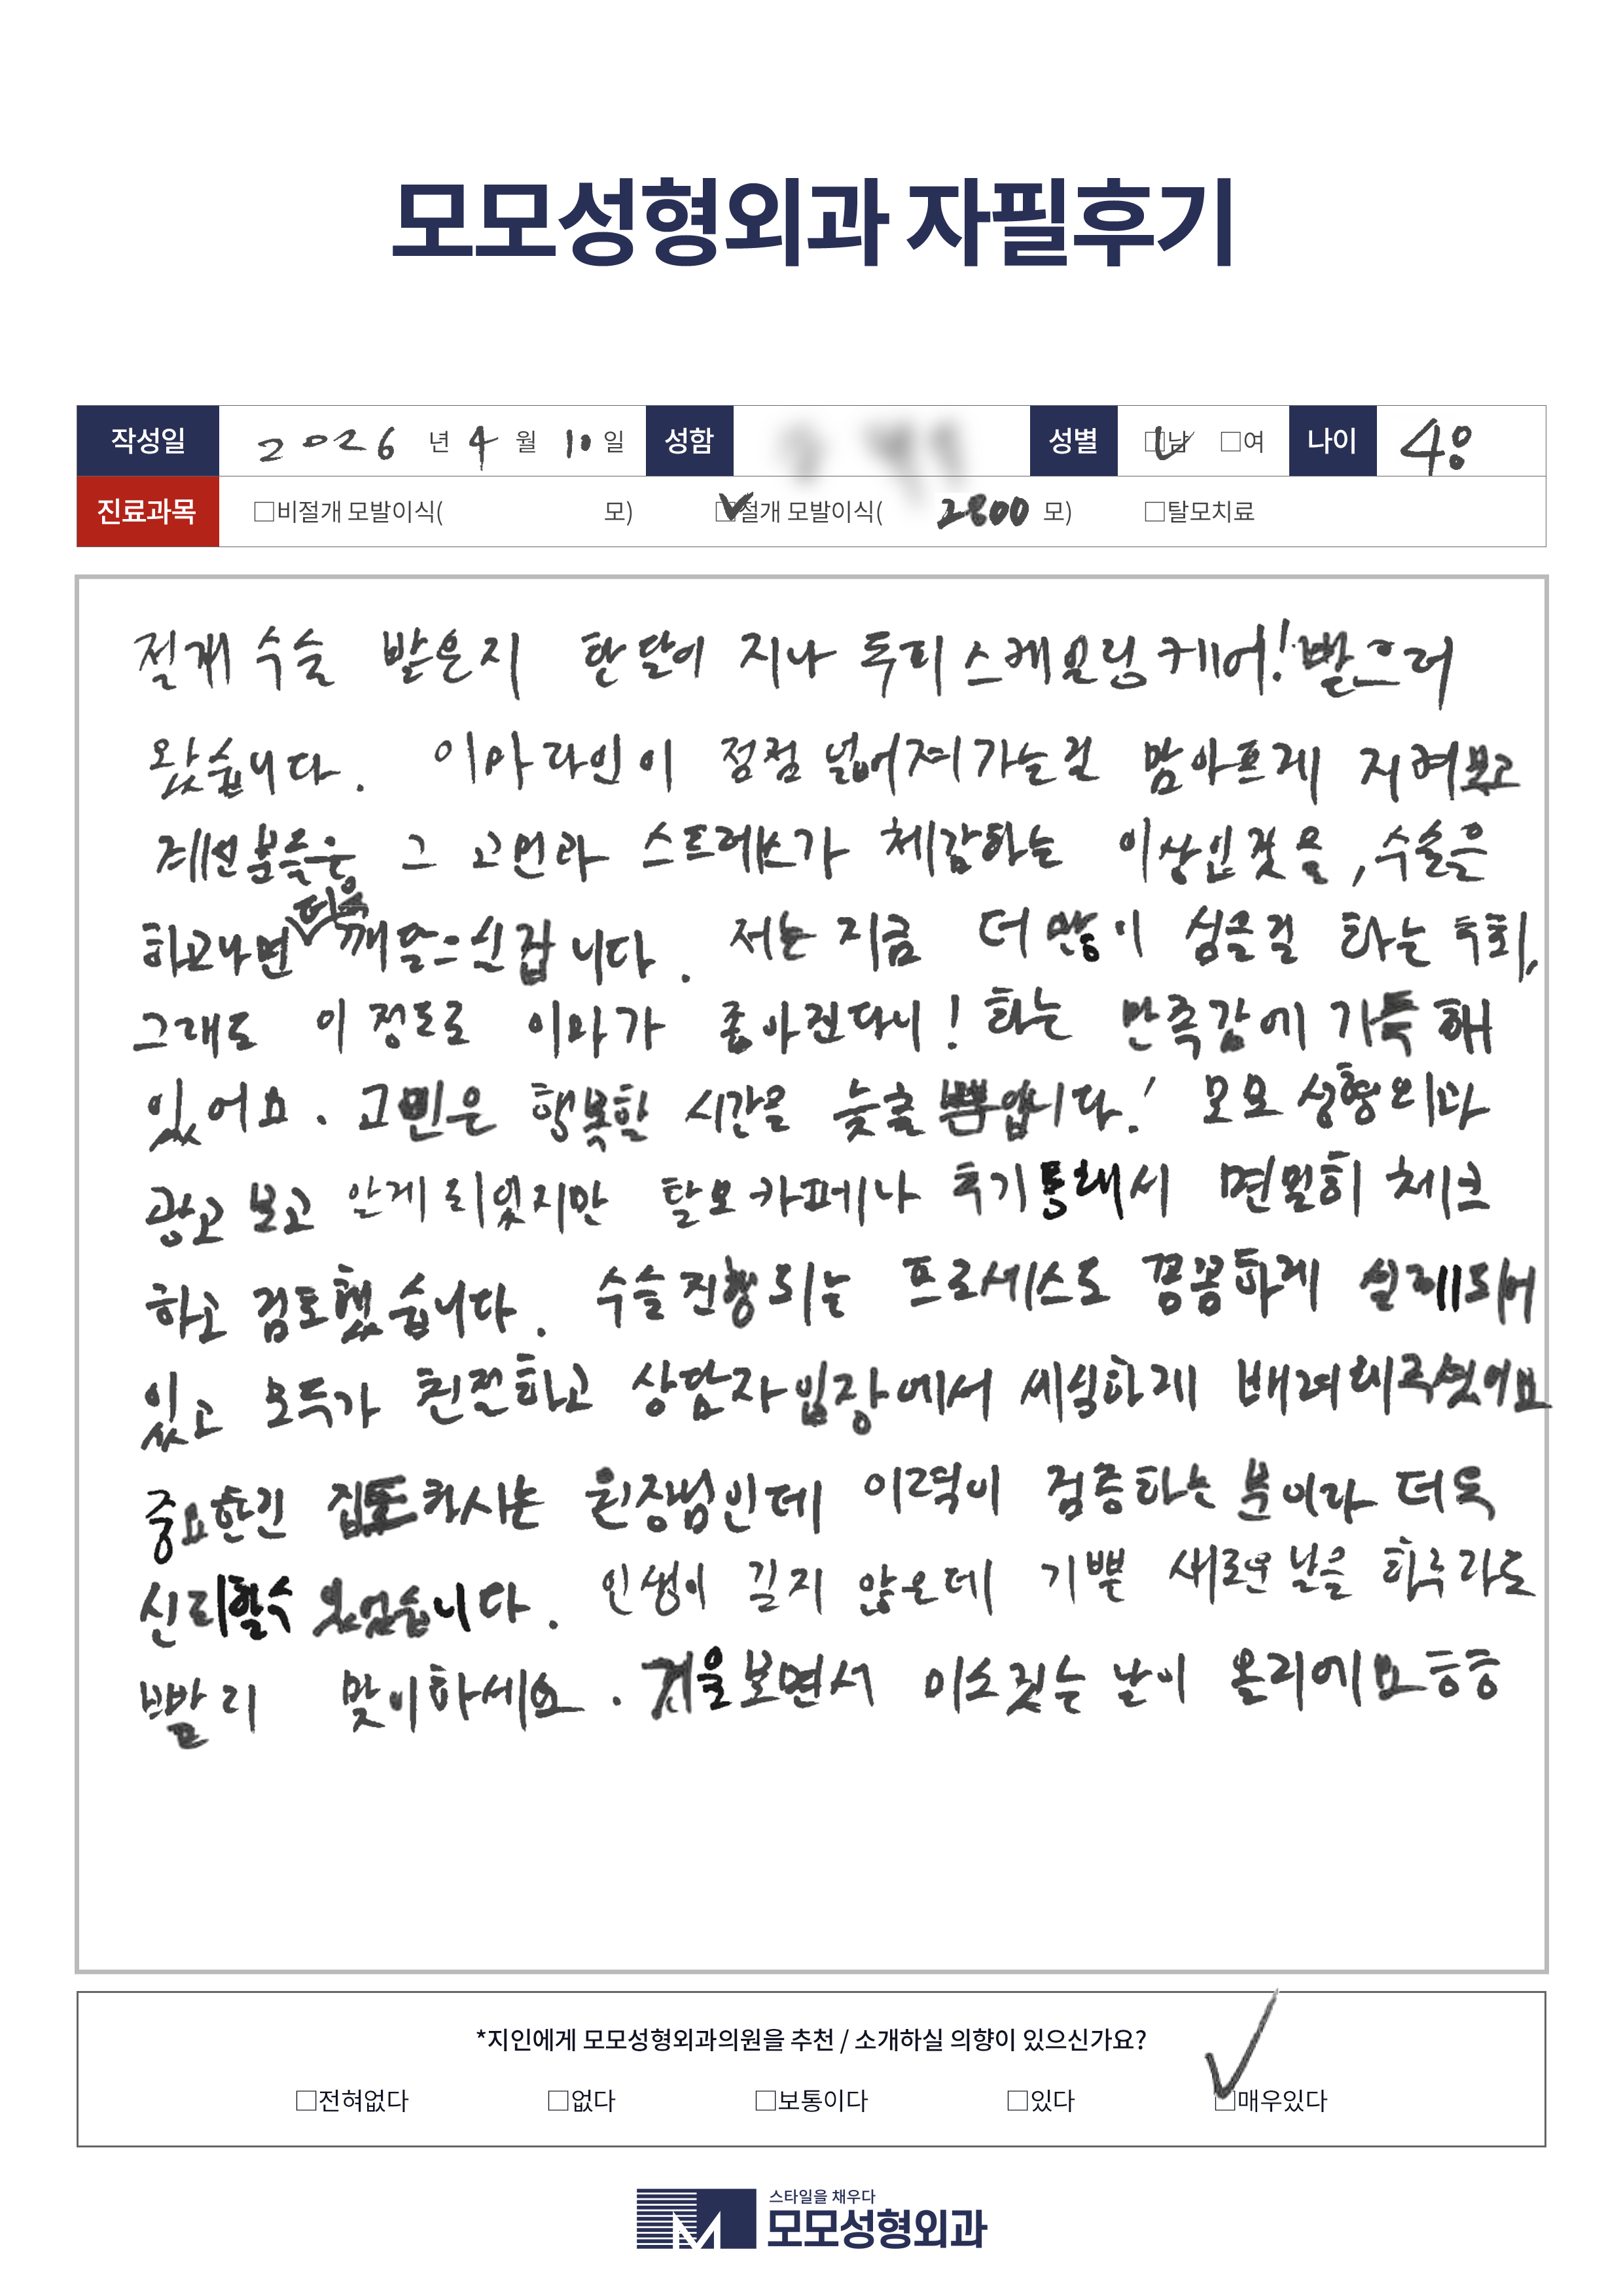 모모성형외과 자필후기
작성일 2026 년 4 월 10 일 성함 성별 □남 □여 나이 48
진료과목 □비절개 모발이식( 모) □절개 모발이식( 2800 모) □탈모치료
절개 수술 받은지 한달이 지나 두피 스케일링 케어! 받으러
왔습니다. 이마라인이 점점 넓어져가는걸 맘아프게 지켜보고
계신분들은 그 고민과 스트레스가 체감하는 이상인것을, 수술을
하고나면 더욱 깨달으실겁니다. 저는 지금 더 많이 심을걸 하는 후회,
그래도 이정도로 이마가 좋아진다니! 하는 만족감에 가득해
있어요. 고민은 행복할 시간을 늦출뿐입니다! 모모성형외과
광고 보고 알게 되었지만 탈모카페나 후기통해서 면밀히 체크
하고 검토했습니다. 수술진행되는 프로세스도 꼼꼼하게 설계되어
있고 모두가 친절하고 상담자입장에서 세심하게 배려해주셨어요
중요한건 집도하시는 원장님인데 이력이 검증하는 분이라 더욱
신뢰할수 있었습니다. 인생이 길지 않은데 기쁠 새로운 날을 하루라도
빨리 맞이하세요. 거울보면서 미소짓는 날이 올리에요ㅎㅎ
*지인에게 모모성형외과의원을 추천 / 소개하실 의향이 있으신가요?
□전혀없다 □없다 □보통이다 □있다 □매우있다
스타일을 채우다
모모성형외과